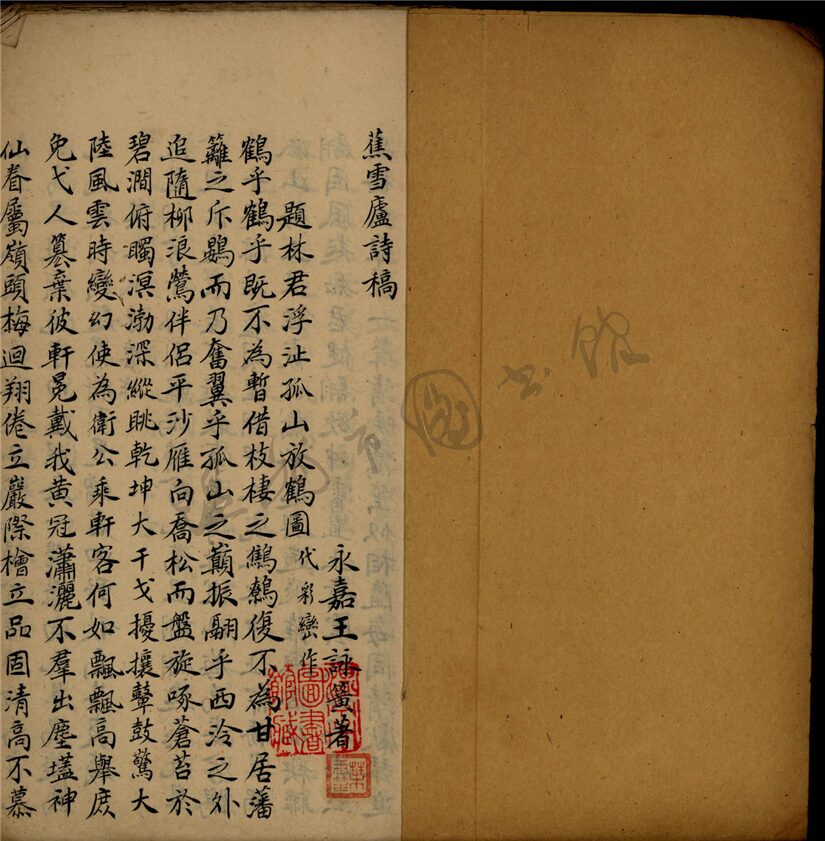 蕉雪廬詩稿
永嘉王詠簧著
題林君浮沚孤山放鶴圖代彩巒作
鶴乎鶴乎既不為暫借枝棲之鷦鷯復不為甘居藩
籬之斥鷃而乃奮翼乎孤山之巔振翮乎西泠之外
追隨柳浪鶯伴侶平沙雁向喬松而盤旋啄蒼苔於
碧澗俯矚溟渤深縱眺乾坤大干戈擾攘鼙鼓驚大
陸風雲時變幻使為衛公乘軒客何如飄飄高舉庶
免弋人篡棄彼軒冕戴我黄冠瀟灑不羣出塵壒神
仙眷屬嶺頭梅迴翔倦立巖際檜立品固清高不慕
圖書